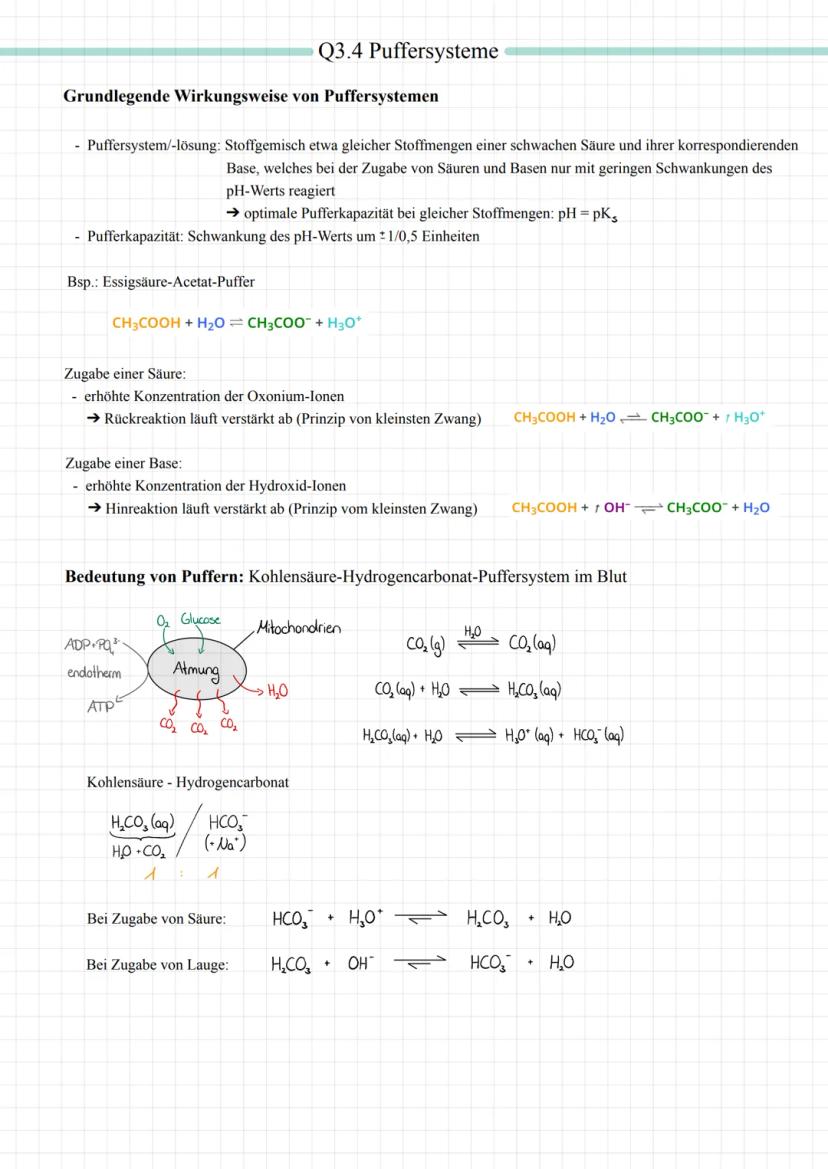 Q3.4 Puffersysteme
Grundlegende Wirkungsweise von Puffersystemen
- Puffersystem/-lösung: Stoffgemisch etwa gleicher Stoffmengen einer schwachen Säure und ihrer korrespondierenden
Base, welches bei der Zugabe von Säuren und Basen nur mit geringen Schwankungen des
pH-Werts reagiert
→ optimale Pufferkapazität bei gleicher Stoffmengen: pH = pKₛ
- Pufferkapazität: Schwankung des pH-Werts um ± 1/0,5 Einheiten
Bsp.: Essigsäure-Acetat-Puffer
CH₃COOH + H₂O ⇌ CH₃COO⁻ + H₃O⁺
Zugabe einer Säure:
- erhöhte Konzentration der Oxonium-Ionen
→ Rückreaktion läuft verstärkt ab (Prinzip von kleinsten Zwang) CH₃COOH + H₂O ⇌ CH₃COO⁻ + ↑ H₃O⁺
Zugabe einer Base:
- erhöhte Konzentration der Hydroxid-Ionen
→ Hinreaktion läuft verstärkt ab (Prinzip vom kleinsten Zwang) CH₃COOH + ↑ OH⁻ ⇌ CH₃COO⁻ + H₂O
Bedeutung von Puffern: Kohlensäure-Hydrogencarbonat-Puffersystem im Blut
O₂ Glucose
Mitochondrien
ADP+PO₄³⁻
endotherm
ATP
Atmung
H₂O
CO₂ CO₂ CO₂
CO₂(g) ⇌ H₂O CO₂(aq)
CO₂(aq) + H₂O ⇌ H₂CO₃(aq)
H₂CO₃(aq) + H₂O ⇌ H₃O⁺(aq) + HCO₃⁻(aq)
Kohlensäure - Hydrogencarbonat
H₂CO₃(aq) / HCO₃⁻
H₂O + CO₂ (+Na⁺)
1 : 1
Bei Zugabe von Säure: HCO₃⁻ + H₃O⁺ ⇌ H₂CO₃ + H₂O
Bei Zugabe von Lauge: H₂CO₃ + OH⁻ ⇌ HCO₃⁻ + H₂O